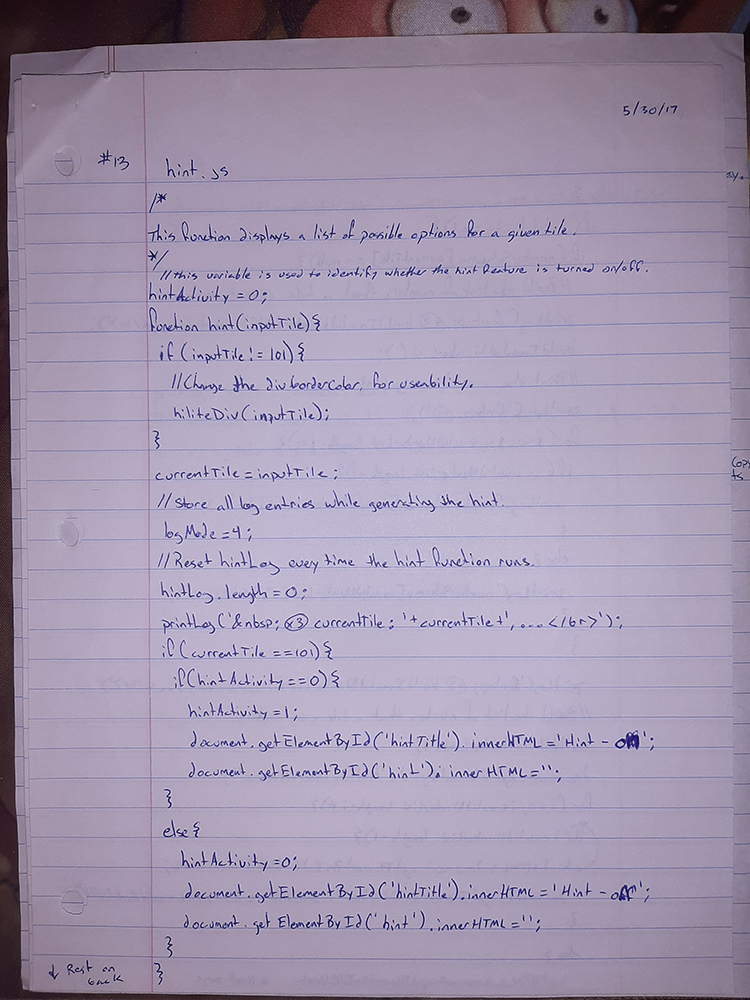 5/30/17
#13 hint.js
/*
This function displays a list of possible options for a given tile.
*/
//this variable is used to identify whether the hint feature is turned on/off.
hintActivity = 0;
function hint(inputTile){
if (inputTile != 101){
//Change the div borderColor, for useability.
hiliteDiv(inputTile);
}
currentTile = inputTile;
//Store all log entries while generating the hint.
logMode = 4;
//Reset hintLog every time the hint function runs.
hintLog.length = 0;
printLog('&nbsp; x3 currentTile: '+currentTile+', ...</br>');
if (currentTile == 101){
if(hintActivity == 0){
hintActivity = 1;
document.getElementById('hintTitle').innerHTML = 'Hint - on';
document.getElementById('hint'). innerHTML = '';
}
else{
hintActivity = 0;
document.getElementById('hintTitle').innerHTML = 'Hint - off';
document.getElementById('hint').innerHTML = '';
}
}
↓ Rest on
back